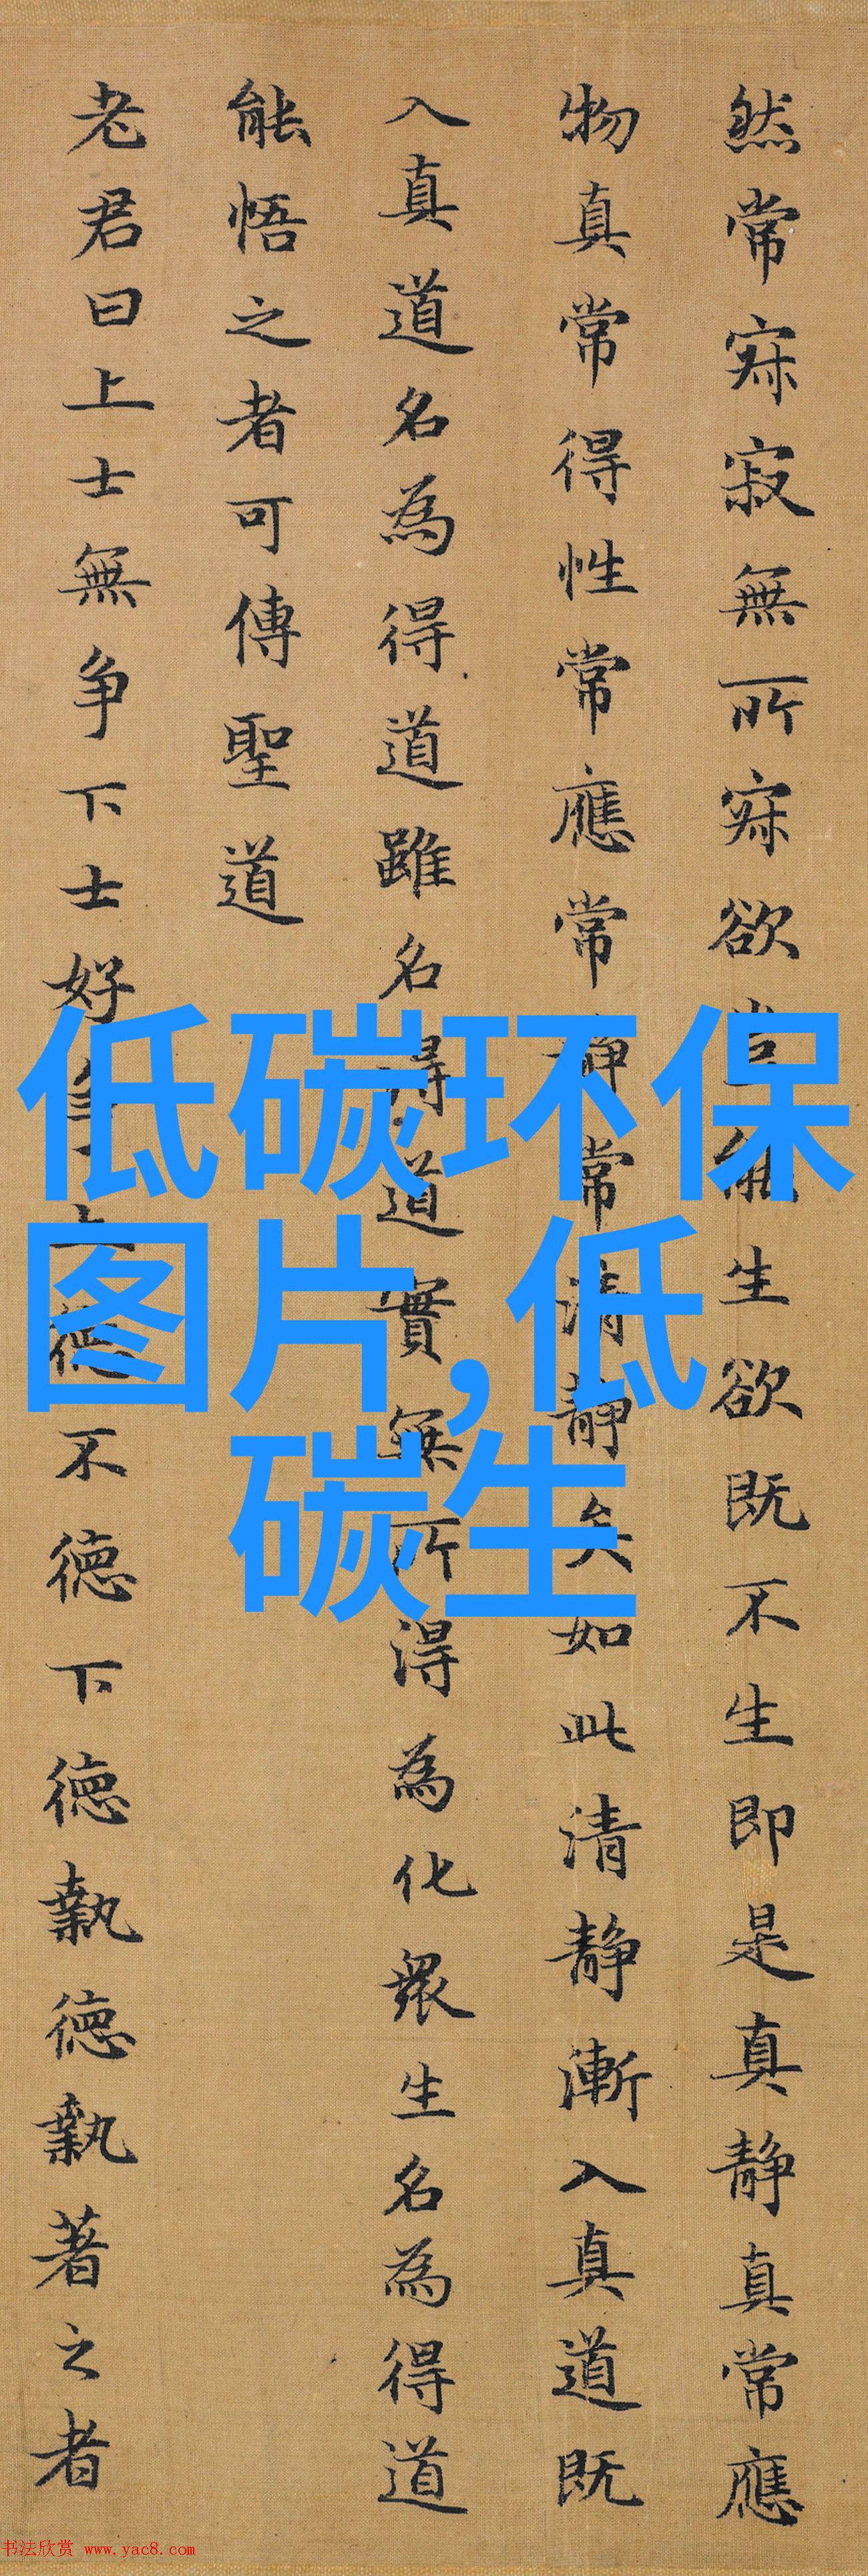 然常寂寂無所寂欲豈能生欲既不生即是真静真常應
物真常得性常應常静常清静矣如此清静漸入真道既
入真道名為得道雖名得道實無所得為化衆生名為得道
能悟之者可傳聖道
老君曰上士無争下士好争上德不德下德執德執著之者
低碳环保
图片,低
碳生
书法欣赏 www.yac8.com